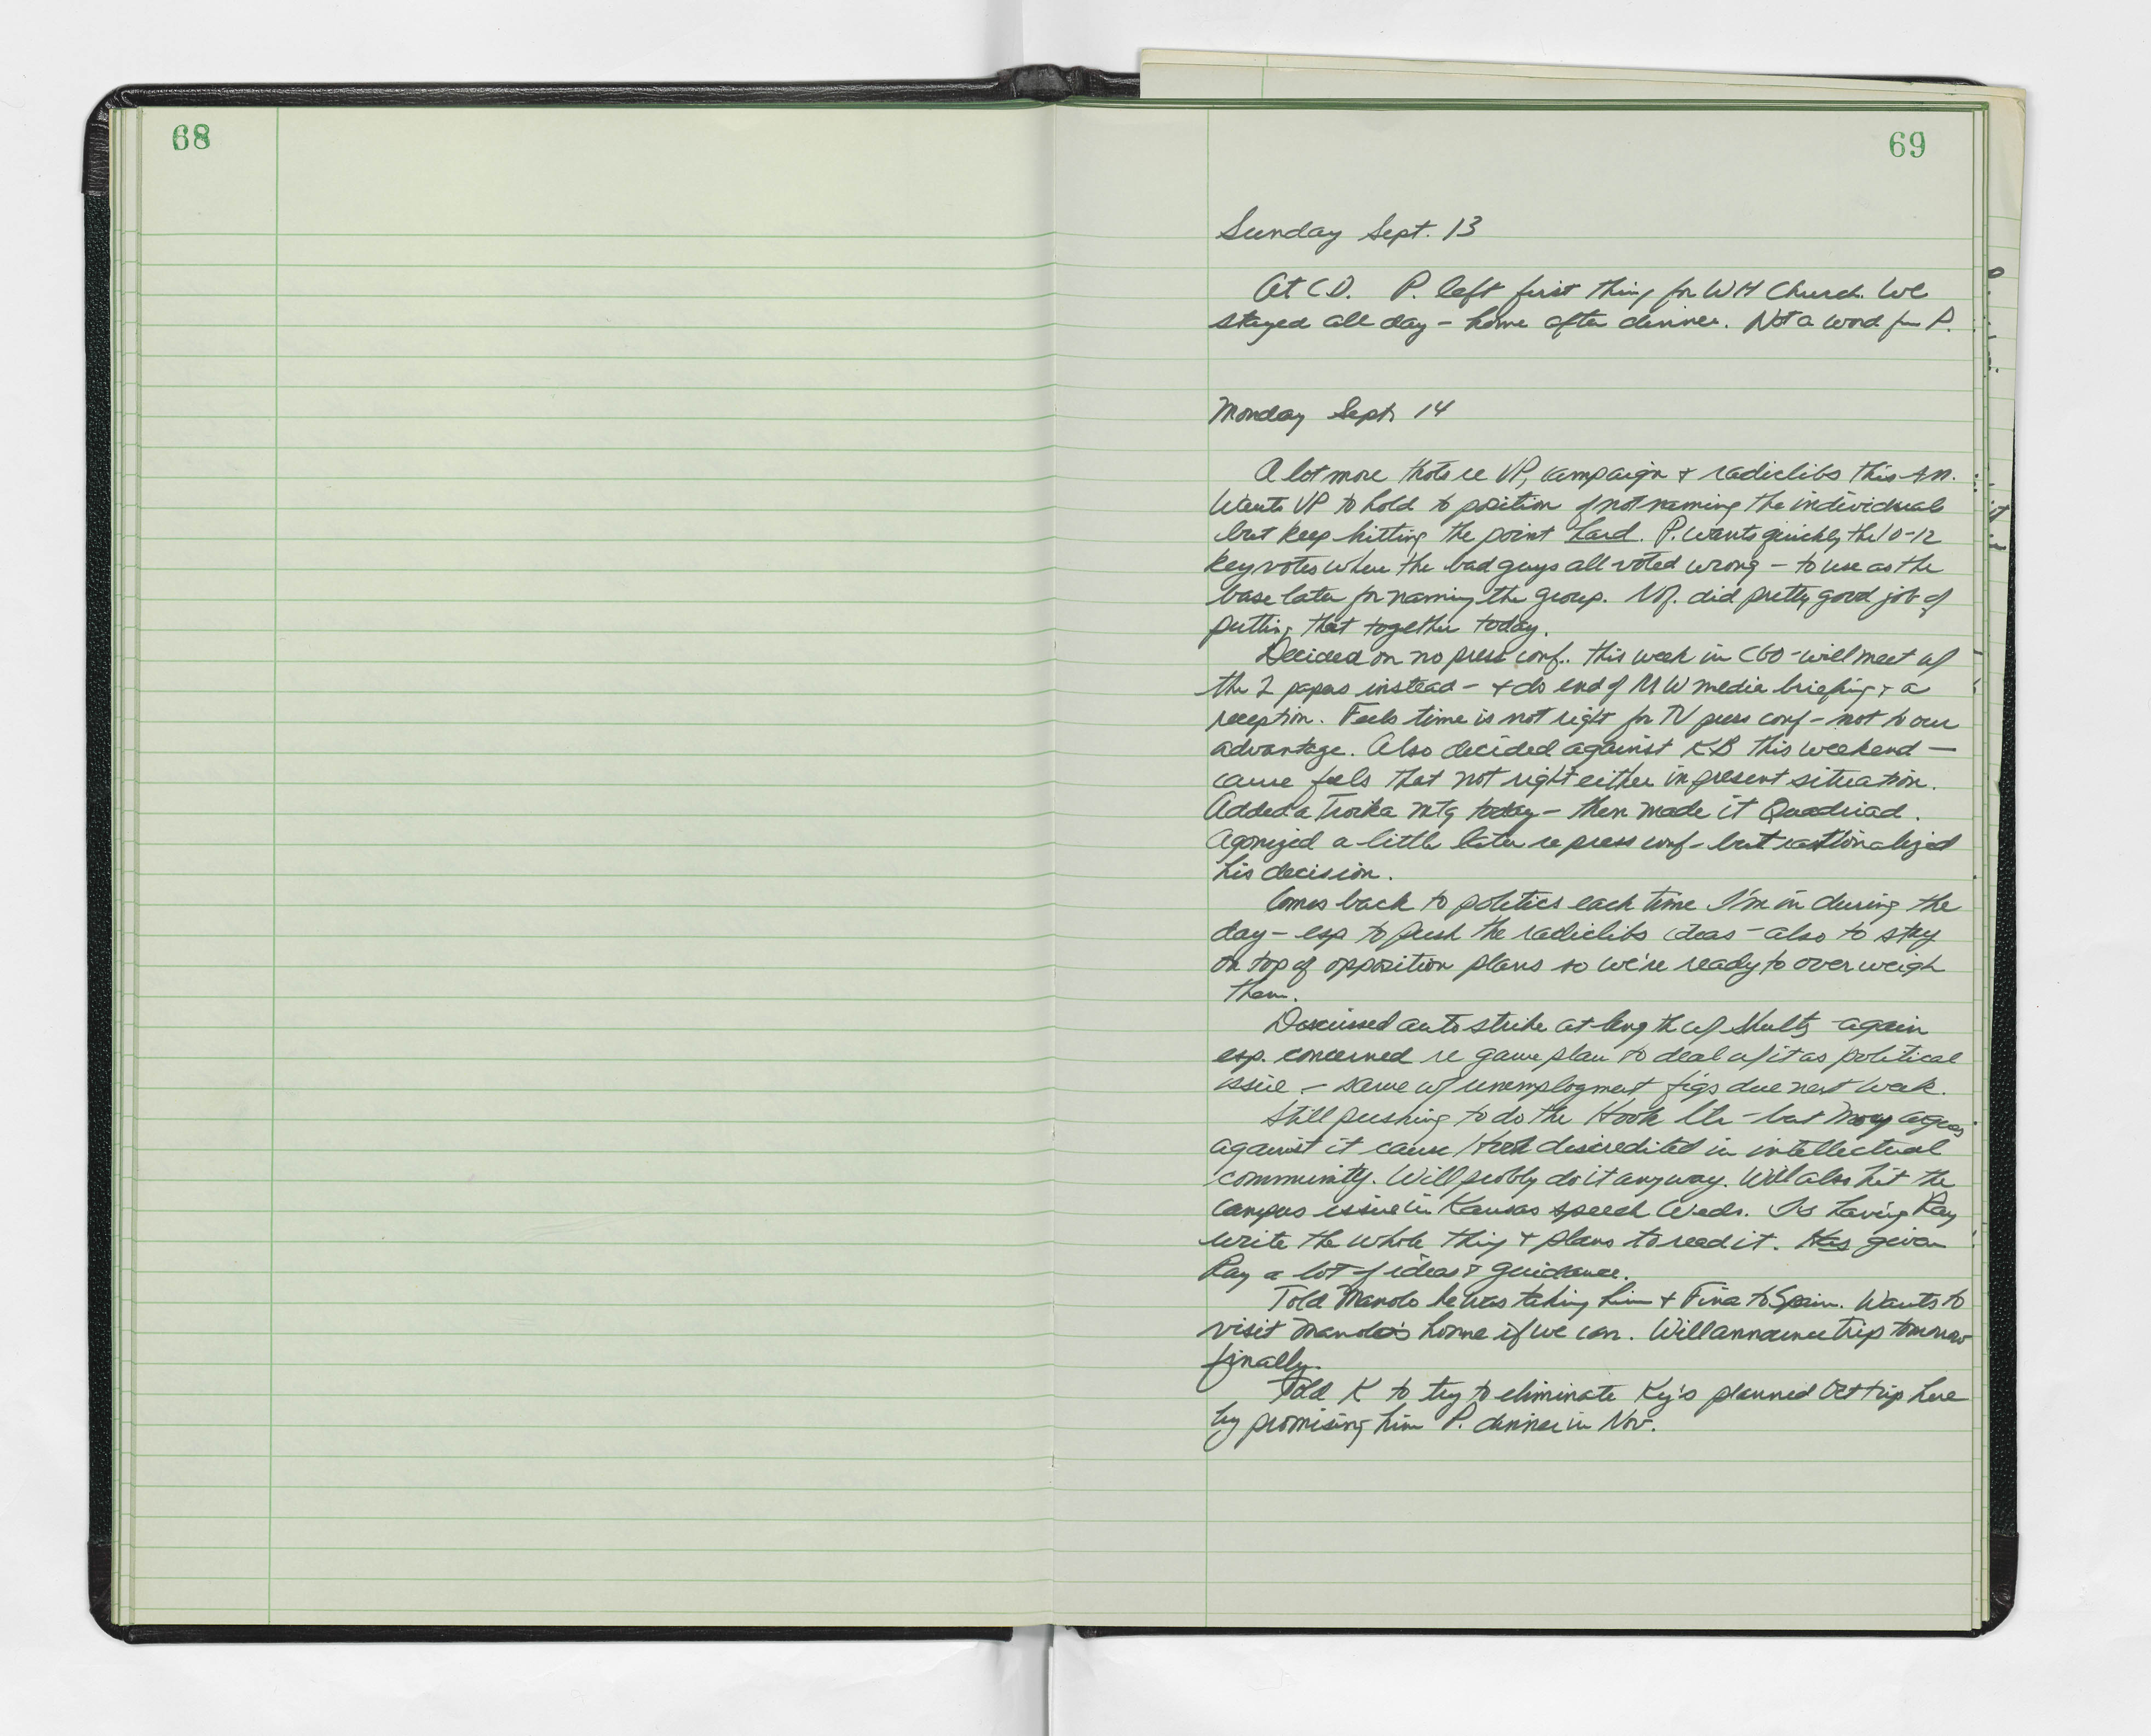 68
69
Sunday Sept. 13
At CD. P. left first thing for WH Church. We
stayed all day – home after dinner. Not a word fm P.
Monday Sept. 14
A lot more thots re VP, campaign & radiclibs this AM.
Wants VP to hold to position of not naming the individuals
but keep hitting the point hard. P. wants quickly the 10-12
key votes where the bad guys all voted wrong – to use as the
base later for naming the group. did pretty good job of
putting that together today.
Decided on no press conf. this week in CGO – will meet w/
the 2 papers instead – & do end of MW media briefing & a
reception. Feels time is not right for TV press conf – not to our
advantage. Also decided against KB this weekend –
cause feels that not right either in present situation.
Added a Troika mtg today – then made it Quadriad.
Agonized a little later re press conf – but rationalized
his decision.
Comes back to politics each time I'm in during the
day – esp to push the radiclibs ideas – also to stay
on top of opposition plans so we're ready to overweigh
them.
Discussed auto strike at length w/ Shultz – again
esp. concerned re game plan to deal w/ it as political
issue – same w/ unemployment figs due next week.
Still pushing to do the Hook ltr – but Moy argues
against it cause Hook discredited in intellectual
community. Will probly do it anyway. Will also hit the
campus issue in Kansas speech Weds. Is having Ray
write the whole thing & plans to read it. Has given
Ray a lot of ideas & guidance.
Told Manolo he was taking him & Fina to Spain. Wants to
visit Manolo's home if we can. Will announce trip tomorrow
finally.
Told K to try to eliminate Ky's planned Oct trip here
by promising him P. dinner in Nov.